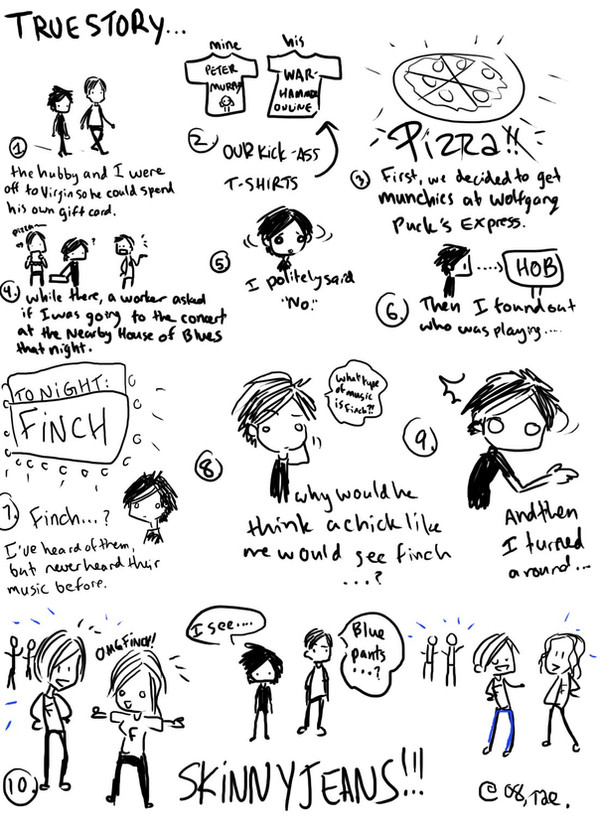 TRUE STORY...
mine
his
PETER
MURPHY
WAR-
HAMMER
ONLINE
1
the hubby and I were
off to Virgin so he could spend
his own gift card.
2.
OUR KICK-ASS
T-SHIRTS
Pizza!!
3
First, we decided to get
munchies at Wolfgang
Puck's Express.
pizza~
?
4.
While there, a worker asked
if I was going to the concert
at the Nearby House of Blues
that night.
5
I politely said
"No."
HOB
6.
Then I found out
who was playing....
TONIGHT:
FINCH
7.
Finch...?
I've heard of them,
but never heard their
music before.
what type
of music
is Finch?!
8
why would he
think a chick like
me would see finch
...?
9.
And then
I turned
around...
OMG FINCH!
F
F
I see....
Blue
pants
...?
F
F
10.
SKINNY JEANS!!!
© 08, Tae.